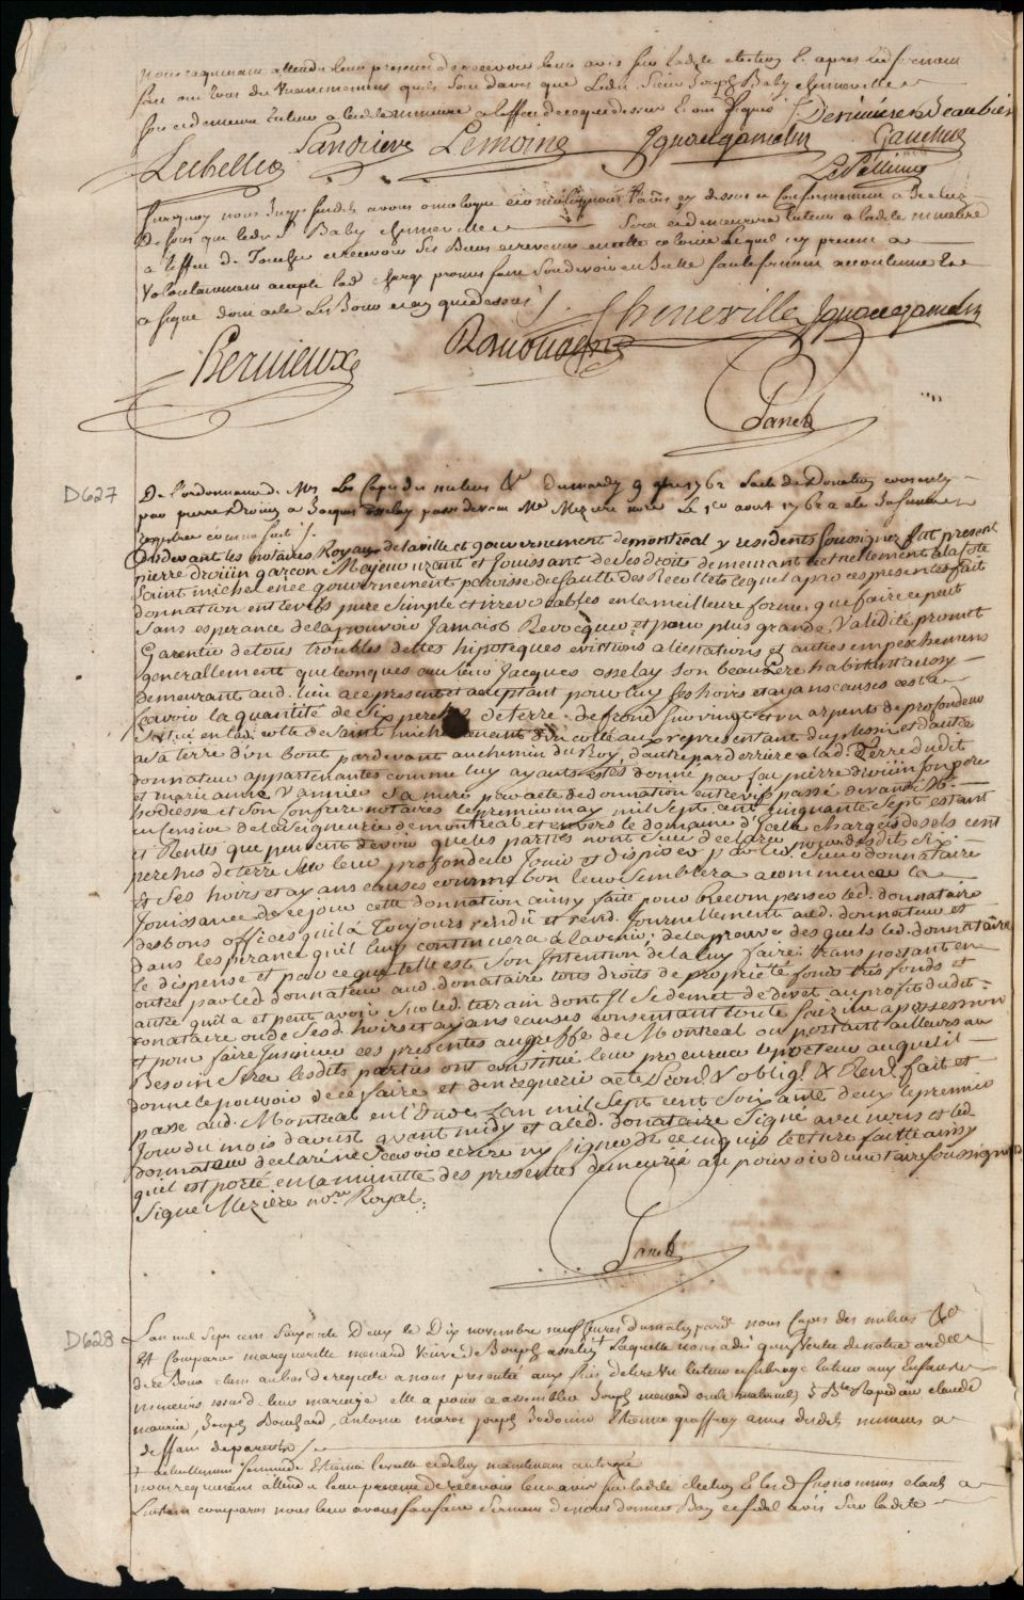 nous requerant attendu leur presence de recevoir leur avis sur ladite election Et apres led serment
fait ont tous dit unanimement quils sont davis que Ledit Sieur Joseph Baby Cheneville
soit et demeure tuteur a lad mineure a leffet de ce que dessus Et ont signé / Derivieres Beaubien
Lechelle Sanoriere Lemoine Ignace gamelin Gauchue
LePellieur
surquoy nous Juge susdit avons omologué lavis cy dessus et Conformement a Iceluy
Disons que ledit S. Baby Cheneville sera et demeurera tuteur a lad mineure
a leffet de Toucher et recevoir ses Biens et revenus en cette colonie Lequel cy present a
volontairement accepté lad charge promis faire son devoir en Icelle sous le serment accoutumé Et
a signé dont acte Les Jour et an que dessus /.
Cheneville Ignace gamelin
Bernieux
Panet
D627
De l'ordonnance de Mrs Les Capes des milices &c du mardy 9 9bre 1762 Lacte de Donation consenty
par pierre Drouin a Jacques Osselay passé devant Me Mezière nore Le 1er aout 1762 a eté Insinué
registré comme suit /.
Pardevant les notaires Royaux de la ville et gouvernement de montreal y residents soussignez fut present
pierre drouin garçon Majeur uzant et Jouissant de ses droits demeurant actuellement a la Coste
Saint michel en ce gouvernement paroisse de sault des Recollets lequel a par ces presentes fait
donnation entre vifs pure simple et irrevocables en la meilleure forme que faire ce peut
sans esperance de la pouvoir Jamais Revocquer et pour plus grande validité promit
Garentir de tous troubles dettes hipoteques evictions alienations et autres empeschemens
generallement quelconques au Sieur Jacques osselay son beau Pere habitant aussy
demeurant aud. lieu a ce present et acceptant pour luy ses hoirs et ayans causes cest a
scavoir la quantité de Six perches de terre de frond sur vingt et un arpents de profondeur
Scitué en lad. coste de Saint michel tenant d'un coté aux representant duplessy et d'autre
a la terre d'un bout pardevant au chemin du Roy, d'autre par derriere a lad. Terre dudit
donnateur appartenantes comme luy ayants estés donné par feu pierre drouin son pere
et marie anne Vannier sa mere par acte de donnation entre vifs passé devant Me
hodiesne et Son confrere notaires le premier may mil Sept cent cinquante Sept estant
en censive de la Seigneurie de montreal et envers le domaine d'Icelle chargés de sels cent
et Rentes que peuvent devoir que les parties n'ont sceu declarer pour desdits Six
perches de terre Sur leur profondeur Jouir et disposer par led. Sieur donnataire
et Ses hoirs et ayans causes comme bon leur Semblera a commencer la
Jouissance de ce jour cette donnation ainsy faite pour Recompenser led. donnataire
des bons offices quil a Toujours rendû et rend Journellement aud. donnateur et
dans lesperance qu'il luy continuera à lavenir; de la preuve des quels led. donnataire
le dispense et parce que telle est Son Intention de la luy faire; transportant en
outre par led. donnateur aud. donataire tous droits de propriété fonds tres fonds et
autre quil a et peut avoir Sur led. terrain dont Il Se demet de devet au profit dudit
donataire ou de Sesd. hoirs et ayans causes consentant toute Saizine a possession
et pour faire Insinuer ces presentes au greffe de Montreal ou partout ailleurs au
Besoin Sera lesdits parties ont constitué leur procureur le porteur auquel il
donne le pouvoir de ce faire et d'en requerir acte Promt & oblig. & Renl. fait et
passé aud. Montreal en l'Etude Lan mil Sept cent Soixante deux le premier
Jour du mois d'aoust avant midy et a led. donataire Signé avec nous et led.
donnateur declaré ne Scavoir ecrire ny Signer de ce enquis lecture faitte ainsy
quil est porté en la minutte des presentes demeurée au pouvoir du notaire Soussigné
Signé Mezière nore Royal:
Panet
D628
Lan mil Sept cent Soixante Deux le Dix novembre neuf heures du matin pardt nous Capes des milices &c
Est Comparue margueritte menard veuve de Joseph asselin + Laquelle nous a dit quen Vertu de notre ordce
de ce Jour etant au bas de requete a nous presentée aux fins delire un tuteur et subrogé tuteur aux Enfans
mineurs issus de leur mariage elle a pour ce assemblée Joseph menard oncle maternel, J Bte Rapidiou claude
maurice, Joseph Bouchard, antoine marois joseph Jodouin Etienne groffroy amis desdits mineurs a
deffaut de parents /.
+ actuellement femme de Etienne lavallé et de luy maintenant autorisée
nous requerant attendu leur presence de recevoir leur avis sur lad election Et les d susnommés etant a
Linstant comparus nous leur avons fait faire Serment de nous donner Bon et fidel avis sur ladite